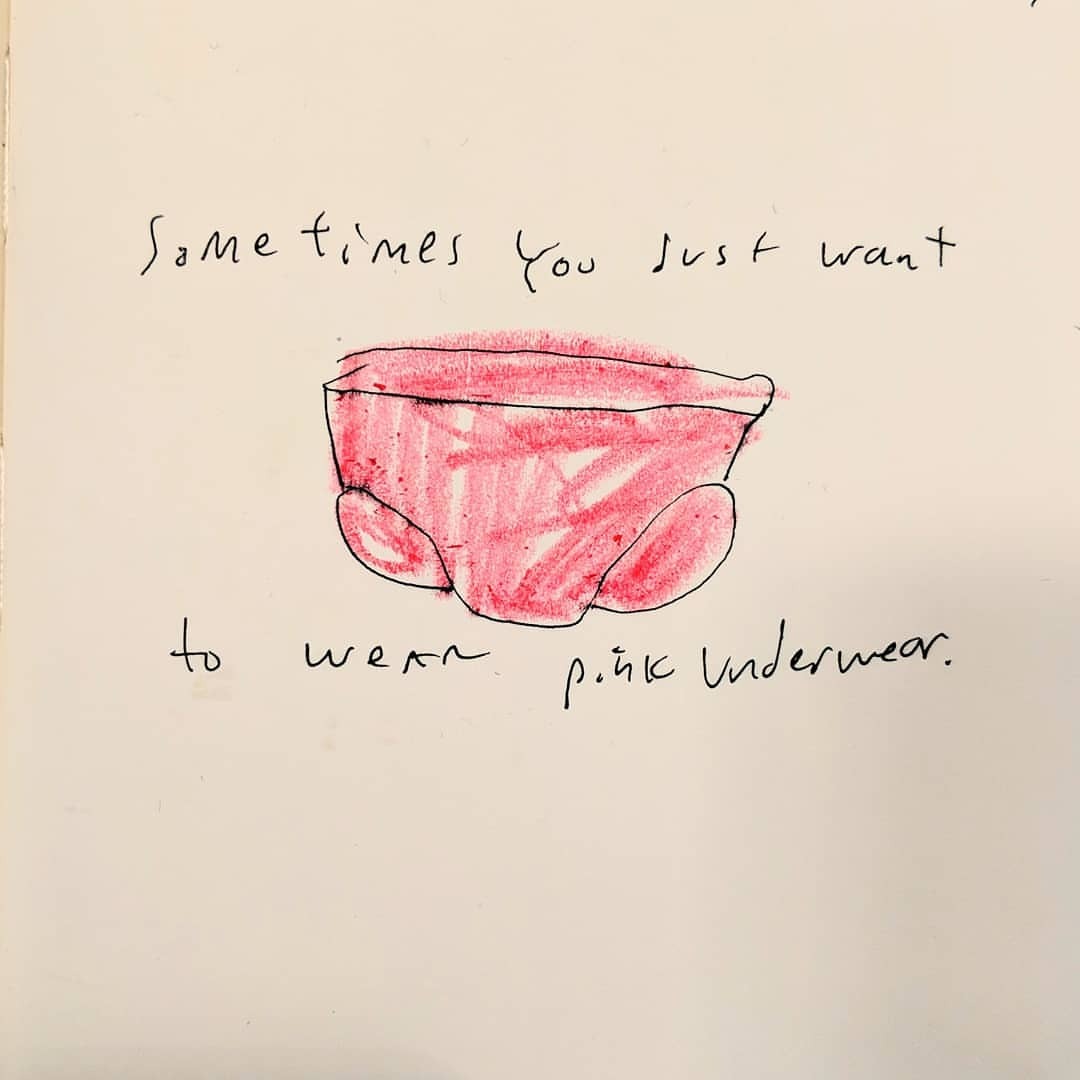 Sometimes you Just want
to wear pink Underwear.